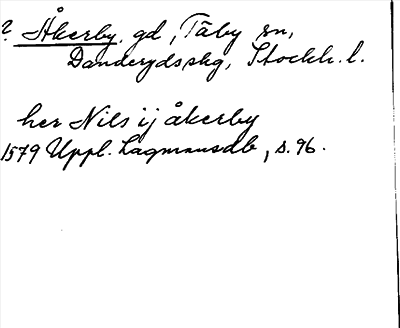 ? Åkerby, gd, Täby sn,
Danderyds skg, Stockh. l.
her Nils ij åkerby
1579 Uppl. Lagmansdb, s. 96.